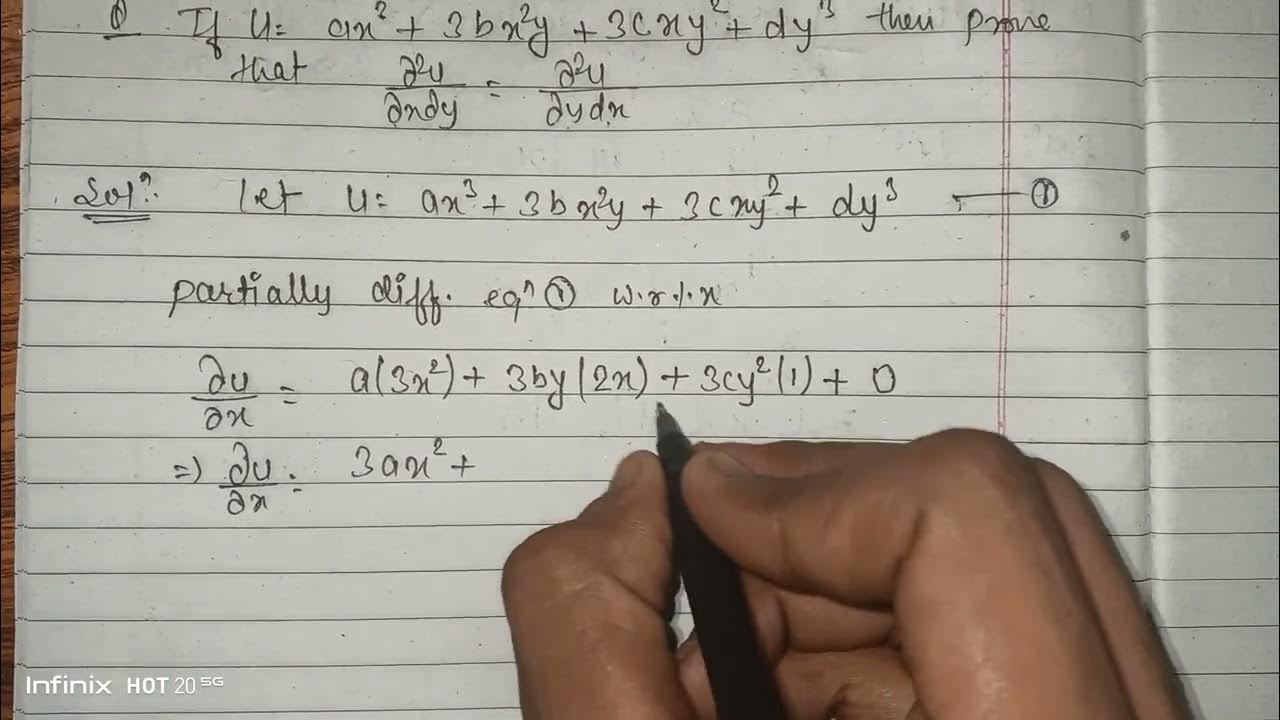 Q If u= ax² + 3bx²y + 3cxy² + dy³ then prove
that ∂²u/∂x∂y = ∂²u/∂ydx
Solⁿ: Let u= ax³ + 3bx²y + 3cxy² + dy³ — ①
partially diff. eqⁿ ① w.r.t. x
∂u/∂x = a(3x²) + 3by(2x) + 3cy²(1) + 0
=) ∂u/∂x = 3ax² +
Infinix HOT 20 5G